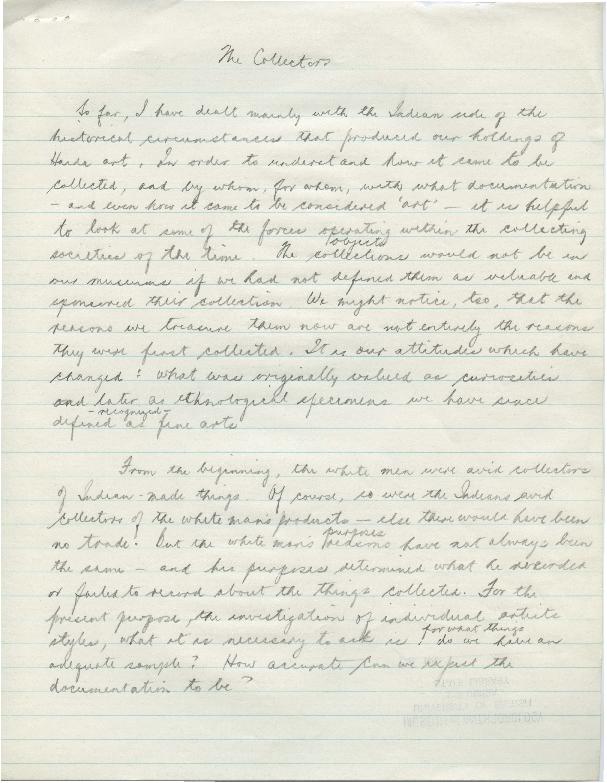 The Collectors
So far, I have dealt mainly with the Indian side of the
historical circumstances that produced our holdings of
Haida art. In order to understand how it came to be
collected, and by whom, for whom, with what documentation
- and even how it came to be considered 'art' - it is helpful
to look at some of the forces operating within the collecting
objects
societies of the time. The collections would not be in
our museums if we had not defined them as valuable and
sponsored their collection. We might notice, too, that the
reasons we treasure them now are not entirely the reasons
they were first collected. It is our attitudes which have
changed: what was originally valued as curiosities
and later as ethnological specimens we have since
-recognized-
defined as fine arts
From the beginning, the white men were avid collectors
of Indian-made things. Of course, so were the Indians avid
collectors of the white man's products - else there would have been
purposes
no trade! But the white man's reasons have not always been
the same - and his purposes determined what he recorded
or failed to record about the things collected. For the
present purpose, the investigation of individual artists
for what things
styles, what it is necessary to ask is: do we have an
adequate sample? How accurate can we expect the
documentation to be?